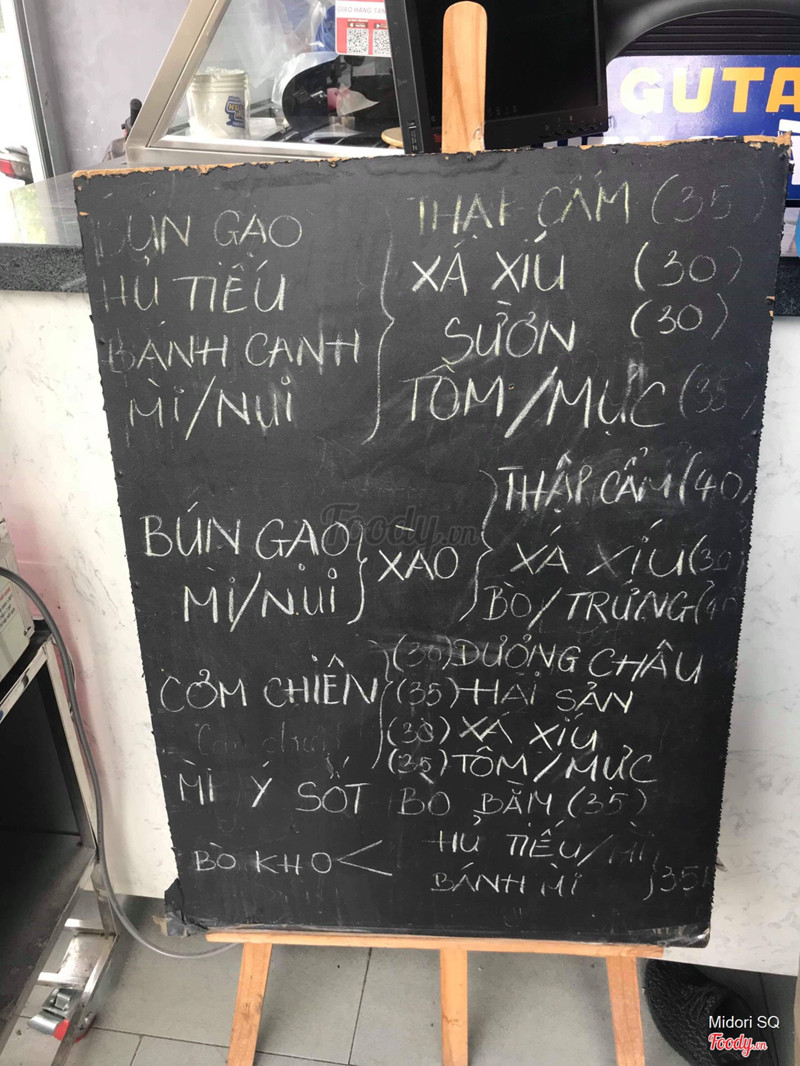 GIAO HÀNG TẬN
GUTA
BÚN GẠO
HỦ TIẾU
BÁNH CANH
MÌ/NUI
THẬP CẨM (35)
XÁ XÍU (30)
SƯỜN (30)
TÔM/MỰC (35)
BÚN GẠO
MÌ/NUI
XÀO
THẬP CẨM (40)
XÁ XÍU (30
BÒ/TRỨNG (40
CƠM CHIÊN
(30) DƯƠNG CHÂU
(35) HẢI SẢN
(30) XÁ XÍU
(35) TÔM/MỰC
MÌ Ý SỐT BÒ BẰM (35)
BÒ KHO <
HỦ TIẾU/MÌ
BÁNH MÌ
35
Foody.vn
Midori SQ
Foody.vn